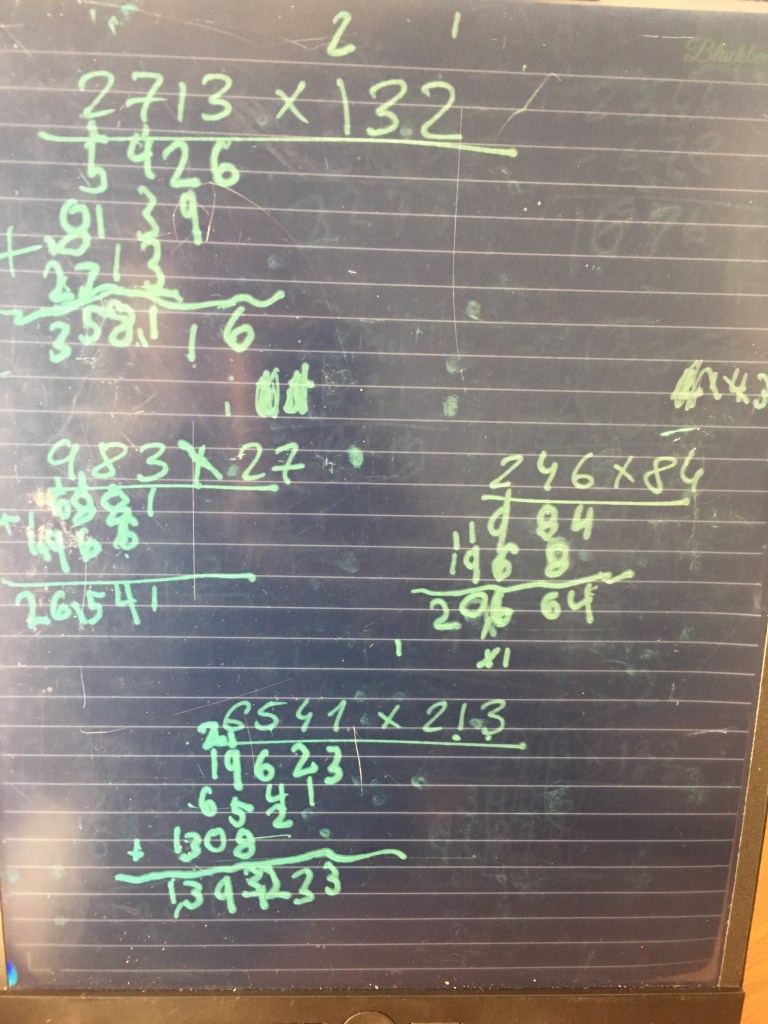 2 1
2713 × 132
5426
8139
+ 2713
358116
983 × 27
6881
+ 1966
26541
246 × 84
984
1968
20664
6541 × 213
19623
6541
+ 1308 2
1393233